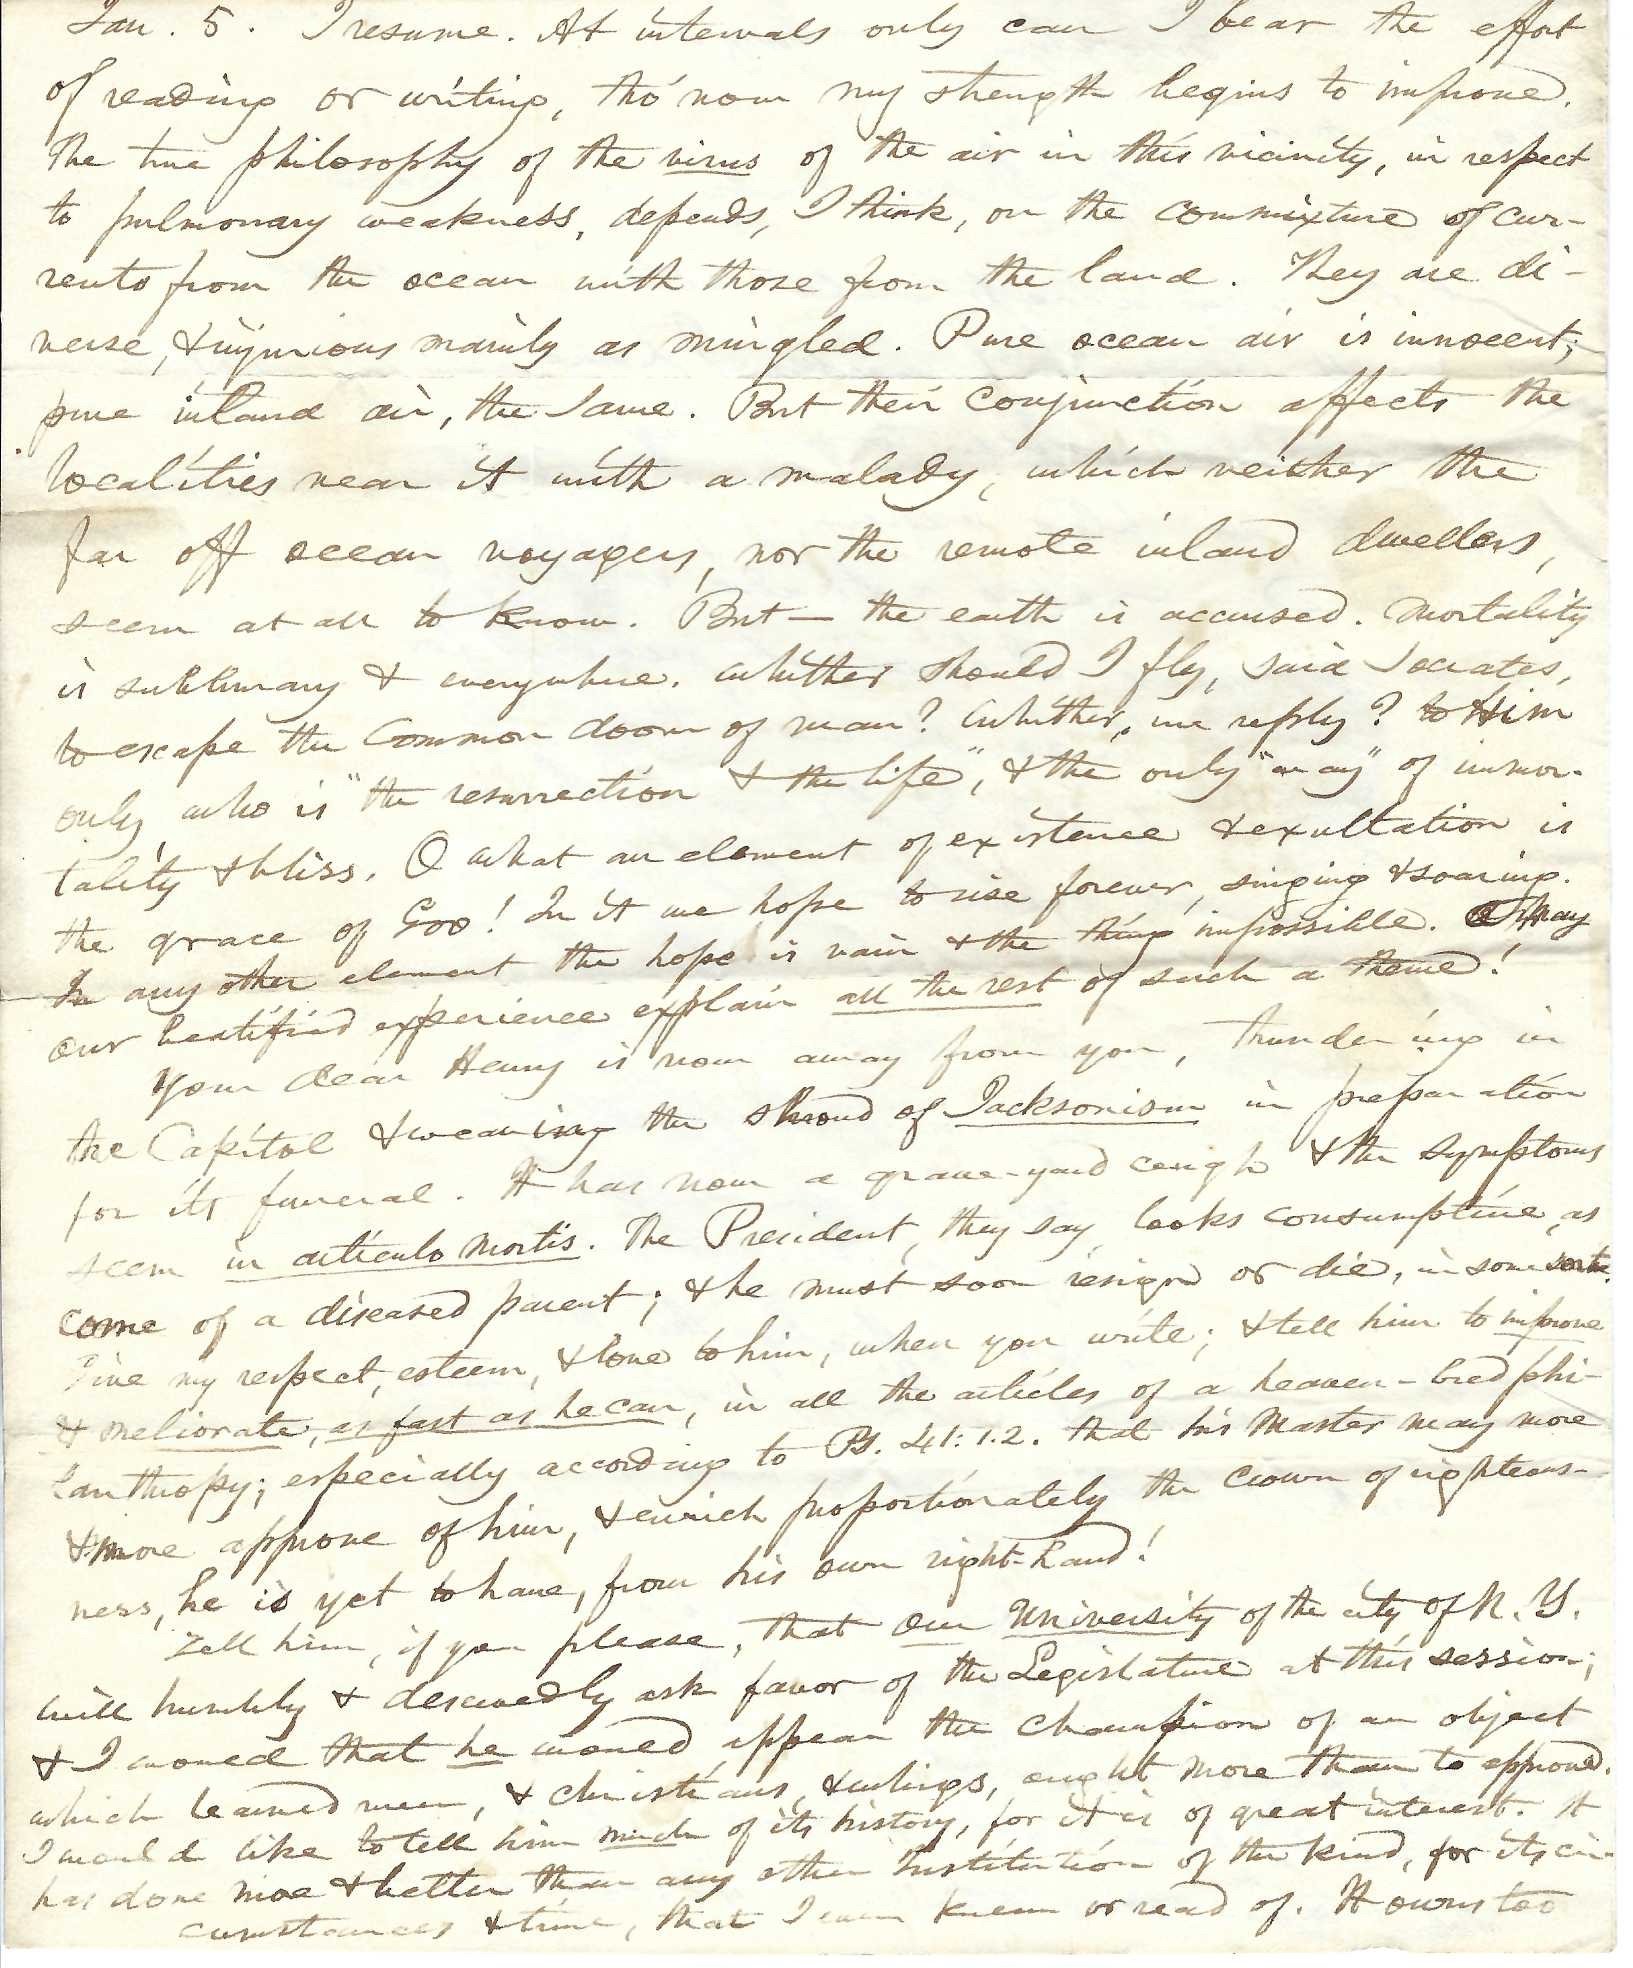 Jan. 5. I resume. At intervals only can I bear the effort
of reading or writing, tho' now my strength begins to improve.
The true philosophy of the virus of the air in this vicinity, in respect
to pulmonary weakness, depends, I think, on the commixture of cur-
rents from the ocean with those from the land. They are di-
verse, & injurious mainly as mingled. Pure ocean air is innocent;
pure inland air, the same. But their conjunction affects the
localities near it with a malady, which neither the
far off ocean voyagers, nor the remote inland dwellers,
seem at all to know. But — the earth is accursed. Mortality
is sublunary & everywhere. Whither should I fly, said Socrates,
to escape the common doom of man? Whither, we reply? to Him
only who is "the resurrection & the life", & the only "way" of immor-
tality & bliss. O what an element of existence & exultation is
the grace of God! In it we hope to rise forever, singing & soaring.
In any other element the hope is vain & the thing impossible. May
our beatified experience explain all the rest of such a theme!
Your dear Henry is now away from you, thundering in
the Capitol & weaving the shroud of Jacksonism in preparation
for its funeral. It has now a grave-yard cough & the symptoms
seem in articulo mortis. The President, they say, looks consumptive, as
come of a diseased parent; & he must soon resign or die, in some sort.
Give my respect, esteem, & love to him, when you write; & tell him to improve
& meliorate, as fast as he can, in all the articles of a heaven-bred phi-
lanthropy; especially according to Ps. 41:1.2. that his Master may more
& more approve of him, & enrich proportionately the crown of righteous-
ness, he is yet to have, from his own right-hand!
Tell him, if you please, that our University of the city of N. Y.
will humbly & deservedly ask favor of the Legislature at this session;
& I would that he would appear the champion of an object
which learned men, & christians, & whigs, ought more than to approve.
I would like to tell him much of its history, for it is of great interest. It
has done more & better than any other Institution of the kind, for its cir-
cumstances & time, that I ever knew or read of. It owns too